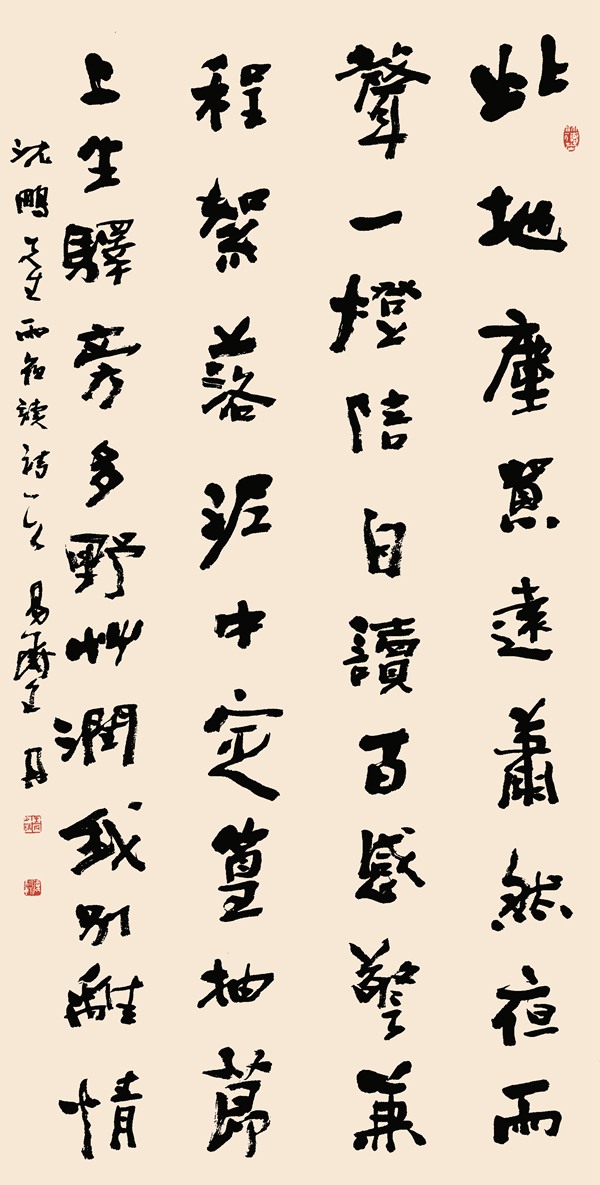 此地塵囂遠蕭然夜雨
聲一燈陪自讀百感警兼
程絮落泥中定篁抽節
上生驛旁多野艸潤我別離情
沈鵬先生雨夜讀詩一首